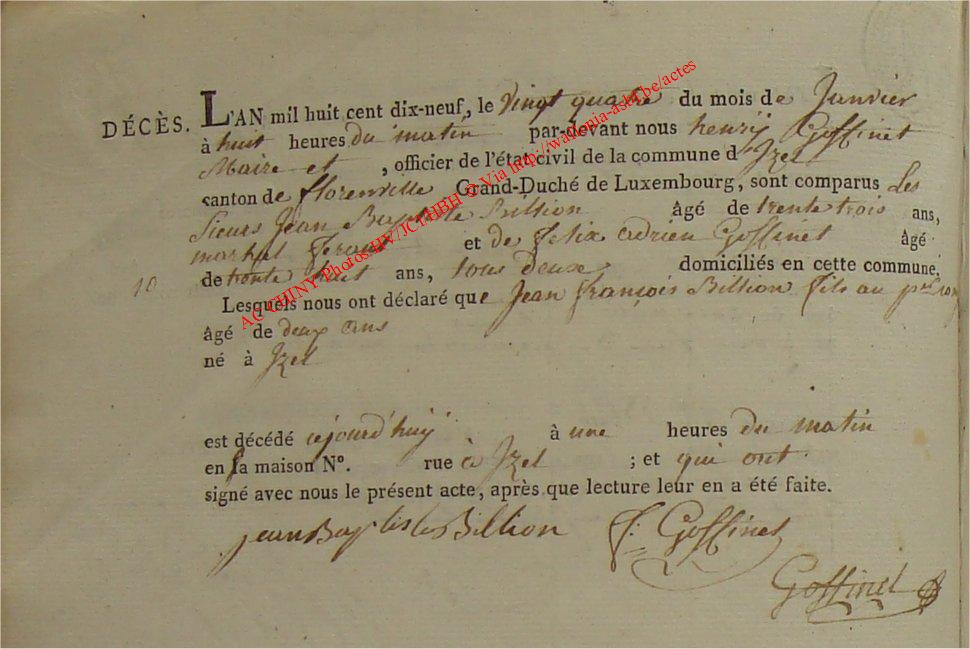 DÉCÈS. L'AN mil huit cent dix-neuf, le Vingt quatre du mois de Janvier
à huit heures du matin par-devant nous henrÿ Goffinet
Maire et , officier de l'état civil de la commune d'Izel
canton de florenville Grand-Duché de Luxembourg, sont comparus Les
Sieurs Jean Baptiste Billion âgé de trente trois ans,
et de Felix adrien Goffinet âgé
10 de trente huit ans, tous deux domiciliés en cette commune.
Lesquels nous ont déclaré que Jean François Billion fils au
âgé de deux ans
né à Izel
est décédé cejourd'huÿ à une heures du matin
en sa maison N°. rue à Izel ; et qui ont
signé avec nous le présent acte, après que lecture leur en a été faite.
jean Baptiste Billion F: Goffinet
Goffinet
AC CHINY Photos HV/JCT/HBH © Via http://wallonia-asbl.be/actes